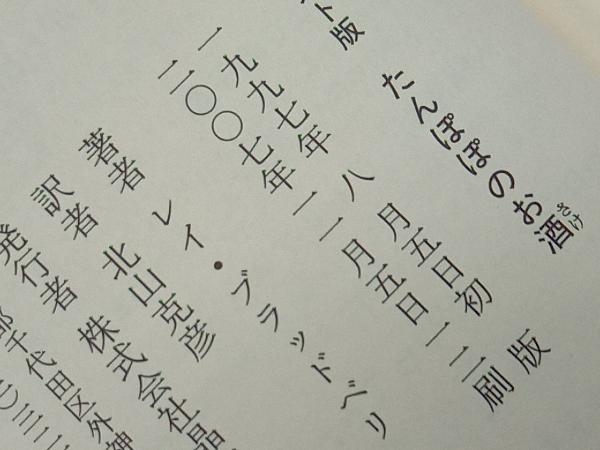 ト版 たんぽぽのお酒
さけ
一九九七年 八月五日初版
二〇〇七年一一月五日一二刷
著者 レイ・ブラッドベリ
訳者 北山克彦
発行者 株式会社晶
千代田区外神